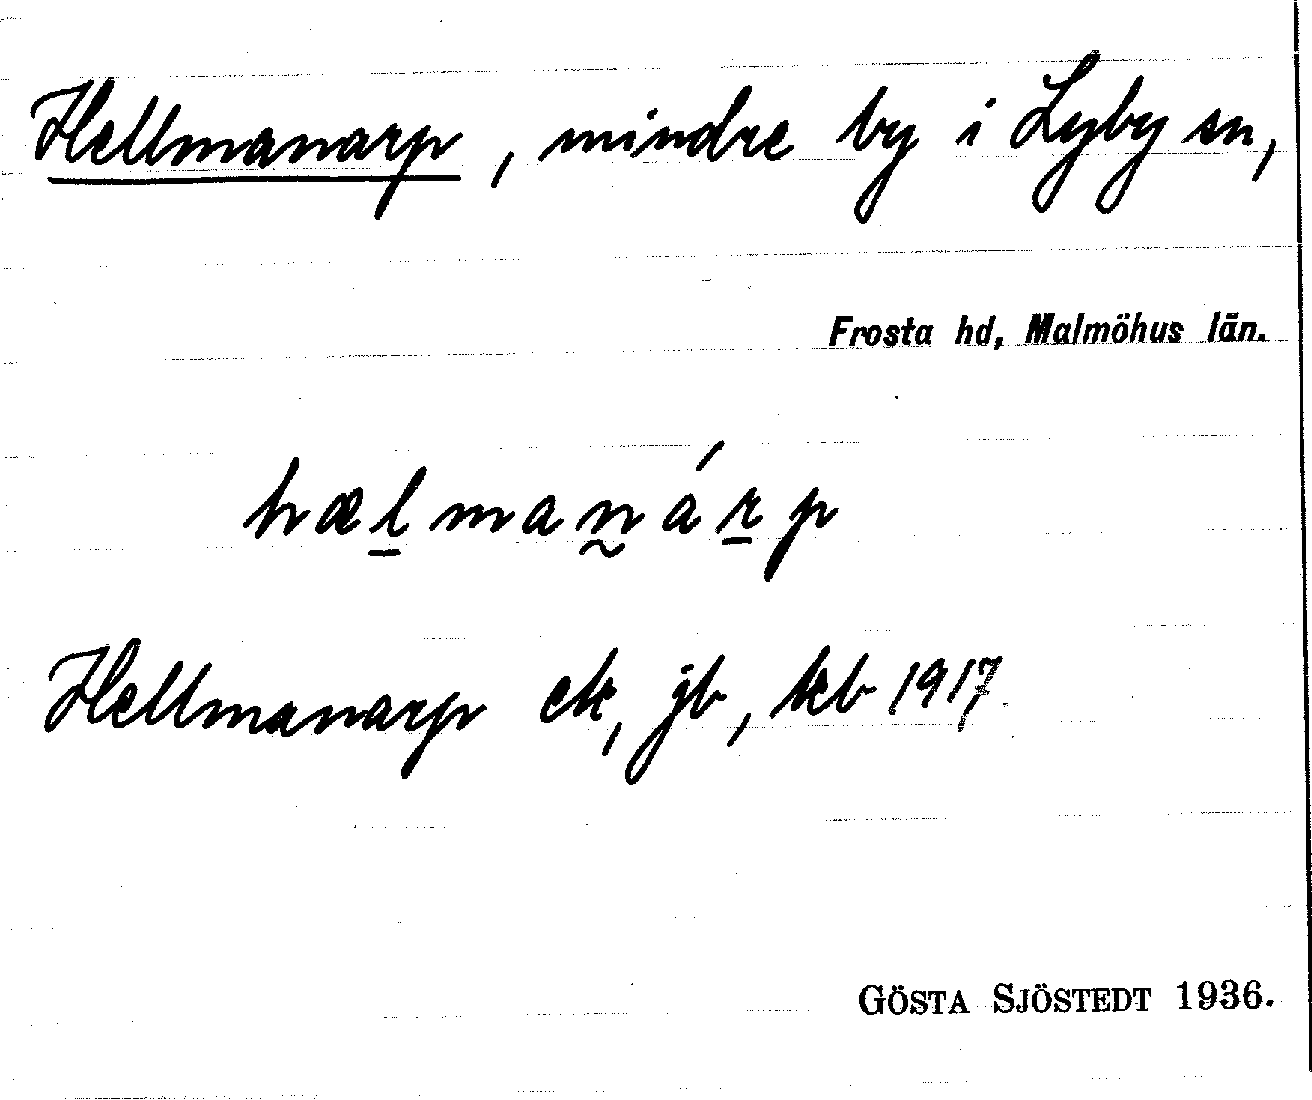 Hellmanarp, mindre by i Lyby sn,
Frosta hd, Malmöhus län.
hæḻman̰árp
Hellmanarp ek, jb, kb 1917.
GÖSTA SJÖSTEDT 1936.